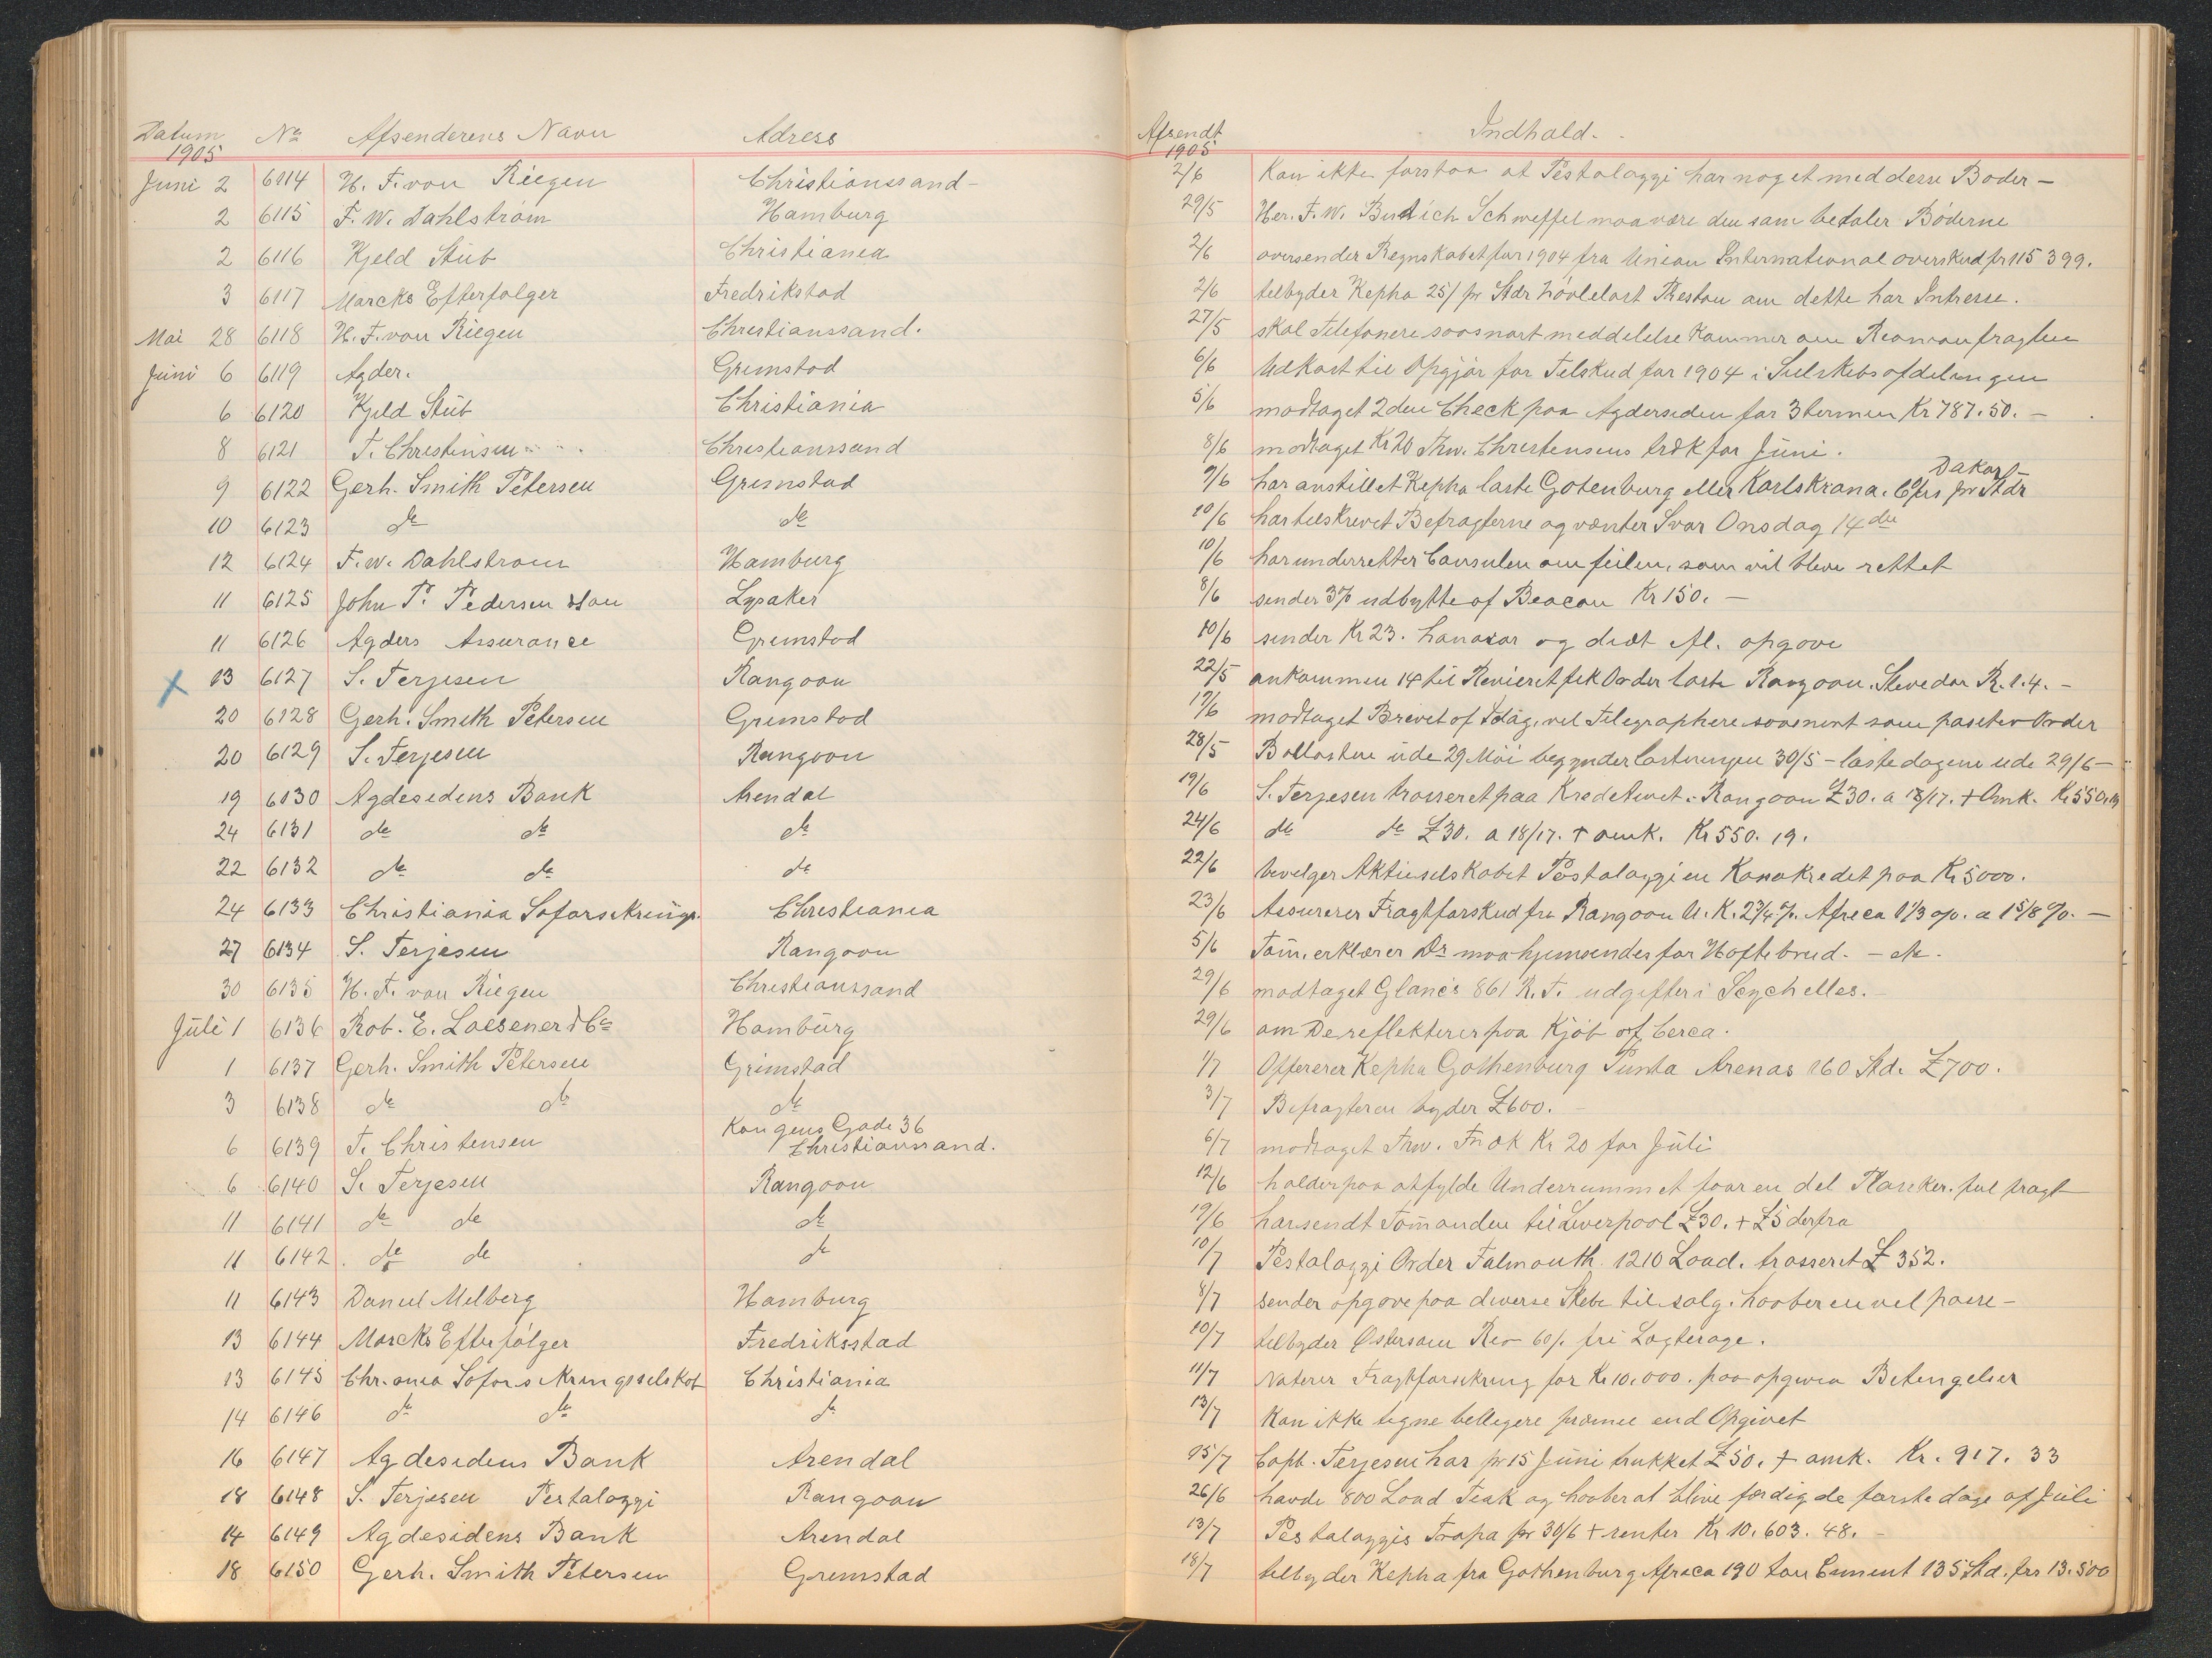 Datum No Afsenderens Navn Adress Afsendt Indhold.
1905 1905
Juni 2 6114 H. F. von Riegen Christianssand - 2/6 Kan ikke forstaa at Pestalozzi har noget med desse Bøder -
2 6115 F. W. Dahlström Hamburg 29/5 Her. F. W. Schweffel maa være den som betaler Böderne
2 6116 Kjeld Stub Christiania 2/6 oversender Regnskabet for 1904 fra Union International overskud pr 115 399.
3 6117 Marcks Efterfølger Fredrikstad 2/6 tilbyder Kepha 25/ pr Stdr Preston om dette har Intresse.
Mai 28 6118 H. F. von Riegen Christianssand. 27/5 skal Telefonere saasnart meddelelse kommer om fragten
Juni 6 6119 Agder. Grimstad 6/6 Udkast til Opgjör for Tilskud for 1904 i Selskabsafdelingen
6 6120 Kjeld Stub Christiania 5/6 modtaget 2den Check paa Agdersiden for 3 termin Kr 787.50. -
8 6121 T. Christensen Christianssand 8/6 modtaget Kr 20 Thv. Christensens træk for Juni.
9 6122 Gerh. Smith Petersen Grimstad 9/6 har anstillet Kepha laste Gotenburg eller Karlskrona. Dakar 6 frs pr Stdr
10 6123 do do 10/6 har tilskrevet Befragterne og vænter Svar Onsdag 14de
12 6124 F. W. Dahlstrom Hamburg 10/6 har underrettet Consulen om feilen, som vil bleve rettet
11 6125 John P. Pedersen & Søn Lysaker 8/6 sender 3% udbytte af Beacon Kr 150. -
11 6126 Agders Assurance Grimstad 10/6 sender Kr 23. Honorar og diæt fl. opgave
x 13 6127 S. Terjesen Rangoon 22/5 ankommen 14 til Revieret fik Order laste Rangoon. Stevedor R. 1.4. -
20 6128 Gerh. Smith Petersen Grimstad 17/6 modtaget Brevet af Idag, vil Telegraphere saasnart som Order
20 6129 S. Terjesen Rangoon 28/5 Ballasten ude 29 Mai begynder lastningen 30/5 - lastedagene ude 29/6 -
19 6130 Agdesidens Bank Arendal 19/6 S. Terjesen trasseret paa Kreditivet i Rangoon £30. a 18/17. + Omk. Kr 550.19
24 6131 do do do 24/6 do do £30. a 18/17. + omk. Kr 550. 19.
22 6132 do do do 22/6 bevelger Aktieselskabet Pestalozzi en Kasakredet paa Kr 5000.
24 6133 Christiania Søforsikrings. Christiania 23/6 Assurerer Fragtforskud fra Rangoon U. K. 2 3/4 %. Africa 1 1/3 %. a 1 5/8 %. -
27 6134 S. Terjesen Rangoon 5/6 Töm. erklærer Dr maa hjemsendes for Hoftebrud. - etc.
30 6135 H. F. von Riegen Christianssand 29/6 modtaget Glanes 861 R. T. udgifter i Seychelles.
Juli 1 6136 Rob. E. Loesener & Co Hamburg 29/6 om De reflekterer paa Kjöb af Cerea.
1 6137 Gerh. Smith Petersen Grimstad 1/7 Offererer Kepha Gothenburg Punta Arenas 160 Std. £700.
3 6138 do do do 3/7 Befragteren byder £600. -
6 6139 T. Christensen Kongens Gade 36 Christianssand. 6/7 modtaget Thv. Træk Kr 20 for Juli
6 6140 S. Terjesen Rangoon 12/6 holder paa at fylde Underrummet faar en del Planker. ful fragt
11 6141 do do do 19/6 har sendt Tömanden til Liverpool £30. + £5 derfra
11 6142 do do do 10/7 Pestalozzi Order Falmouth. 1210 Load. trasseret £ 352.
11 6143 Daniel Melberg Hamburg 8/7 Sender opgave paa diverse Skibe til salg. haaber en vel passe -
13 6144 Marcks Efterfölger Fredriksstad 10/7 tilbyder Östersøen Rio 60/. fri Lagterage.
13 6145 Chr.ania Søforsikringsselskab Christiania 11/7 Noterer Fragtforsikring for Kr 10.000. paa opgivna Betingelser
14 6146 do do do 13/7 Kan ikke tegne billigere præmie end Opgivet
16 6147 Agdesidens Bank Arendal 15/7 Capt. Terjesen har pr 15 Juni trukket £50. + omk. Kr. 917. 33
18 6148 S. Terjesen Pestalozzi Rangoon 26/6 havde 800 Load Teak og haaber at blive færdig de første dage af Juli
14 6149 Agdesidens Bank Arendal 13/7 Pestalozzis Trapa pr 30/6 + renter Kr 10.603. 48. -
18 6150 Gerh. Smith Petersen Grimstad 18/7 tilbyder Kepha fra Gothenburg Africa 190 ton Cement 135 Std. frs 13.500